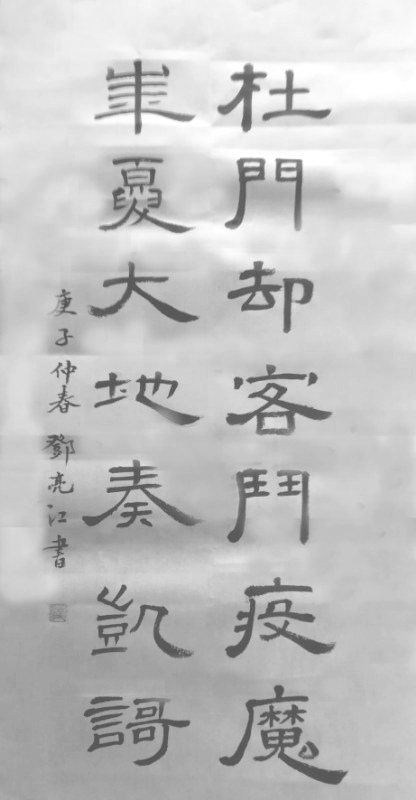 杜門却客鬥疫魔
華夏大地奏凱謌
庚子仲春鄧亮江書